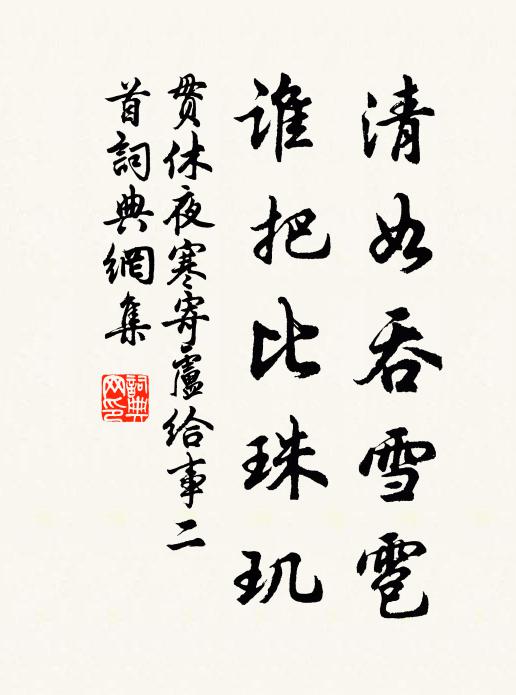 清如吞雪雹
谁把比珠玑
贯休夜寒寄盧给事二
首詞典網集
詞典
网印